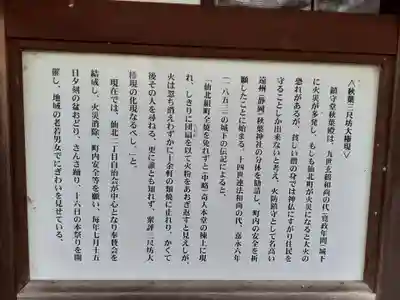 〈秋葉三尺坊大権現〉
鎮守堂秋葉殿は、八世玄館和尚の代（寛政年間）城下
に火災が多発し、もしも仙北町が火災になると大火の
恐れがあるが、貧しい僧の身では神仏にすがり住民を
守ることしか出来ないと考え、火防鎮守として名高い
遠州（静岡）秋葉神社の分体を勧請し、町内の安全を祈
願したことに始まる。十四世連法和尚の代、嘉永六年
（一八五三）の城下の伝記によると、
「仙北組町全焼を免れずと（中略）奇人本堂の棟上に現
れ、しきりに団扇を以て火粉をあおぎ返すと見えしが、
火は忽ち消えわずかに十余軒の類焼に止れり、かくて
後その人を尋ねるに更に誰とも知れず、衆評三尺坊大
権現の化現なるべし…」と。
現在では、仙北一丁目自治会が中心となり奉賛会を
結成し、火災消除、町内安全等を願い、毎年七月十五
日夕刻の盆おどり、さんさ踊り、十六日の本祭りを開
催し、地域の老若男女でにぎわいを見せている。